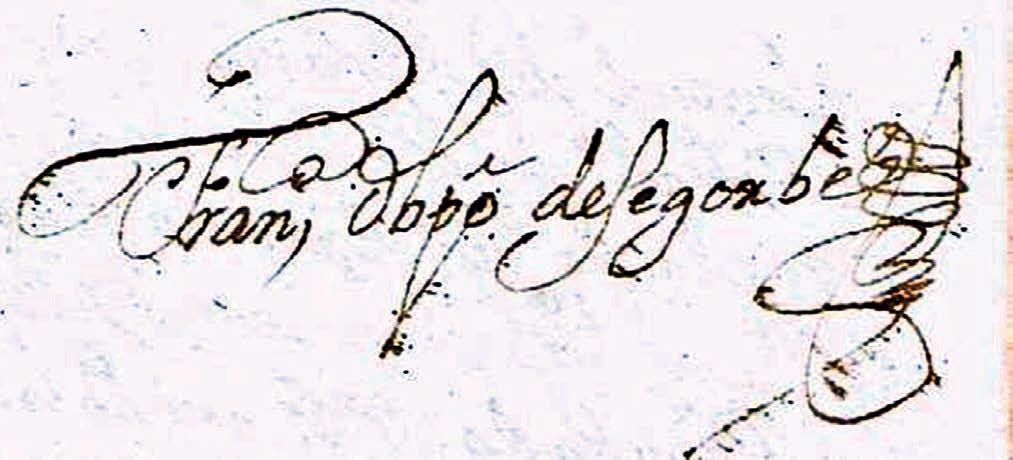 fran, obpõ de segorbe